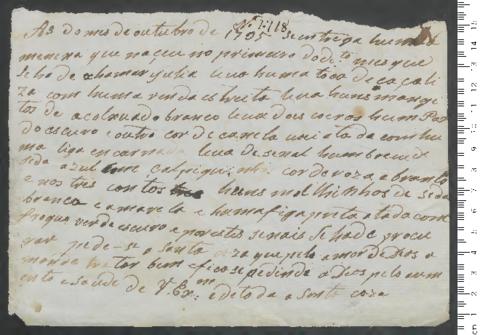 Nº 1:118
As do mes de outubro de 1795 se entrega huma
menina que naçeu no primeiro do dº mes que
se ha de chamar Julia leva huma toca de caça li
za com huma renda estreita leva huns mangi
tos de acolxuado branco leva dois coeros hum
do escuro e outro cor de canela vai atada com hu
ma liga encarnada leva de senal hum
seda azul cor de roza e branco
e nos tres contos huns molhinhos de seda
branca e amarela e huma figa preta atada com
verde escuro e por estes senais se ha de procu
rar pede-se a santa caza que pelo amor de Deos a
mande tratar bem e fico se pedindo a Deos pelo aum
ento e saude de V. Exª e de toda a santa caza
cm